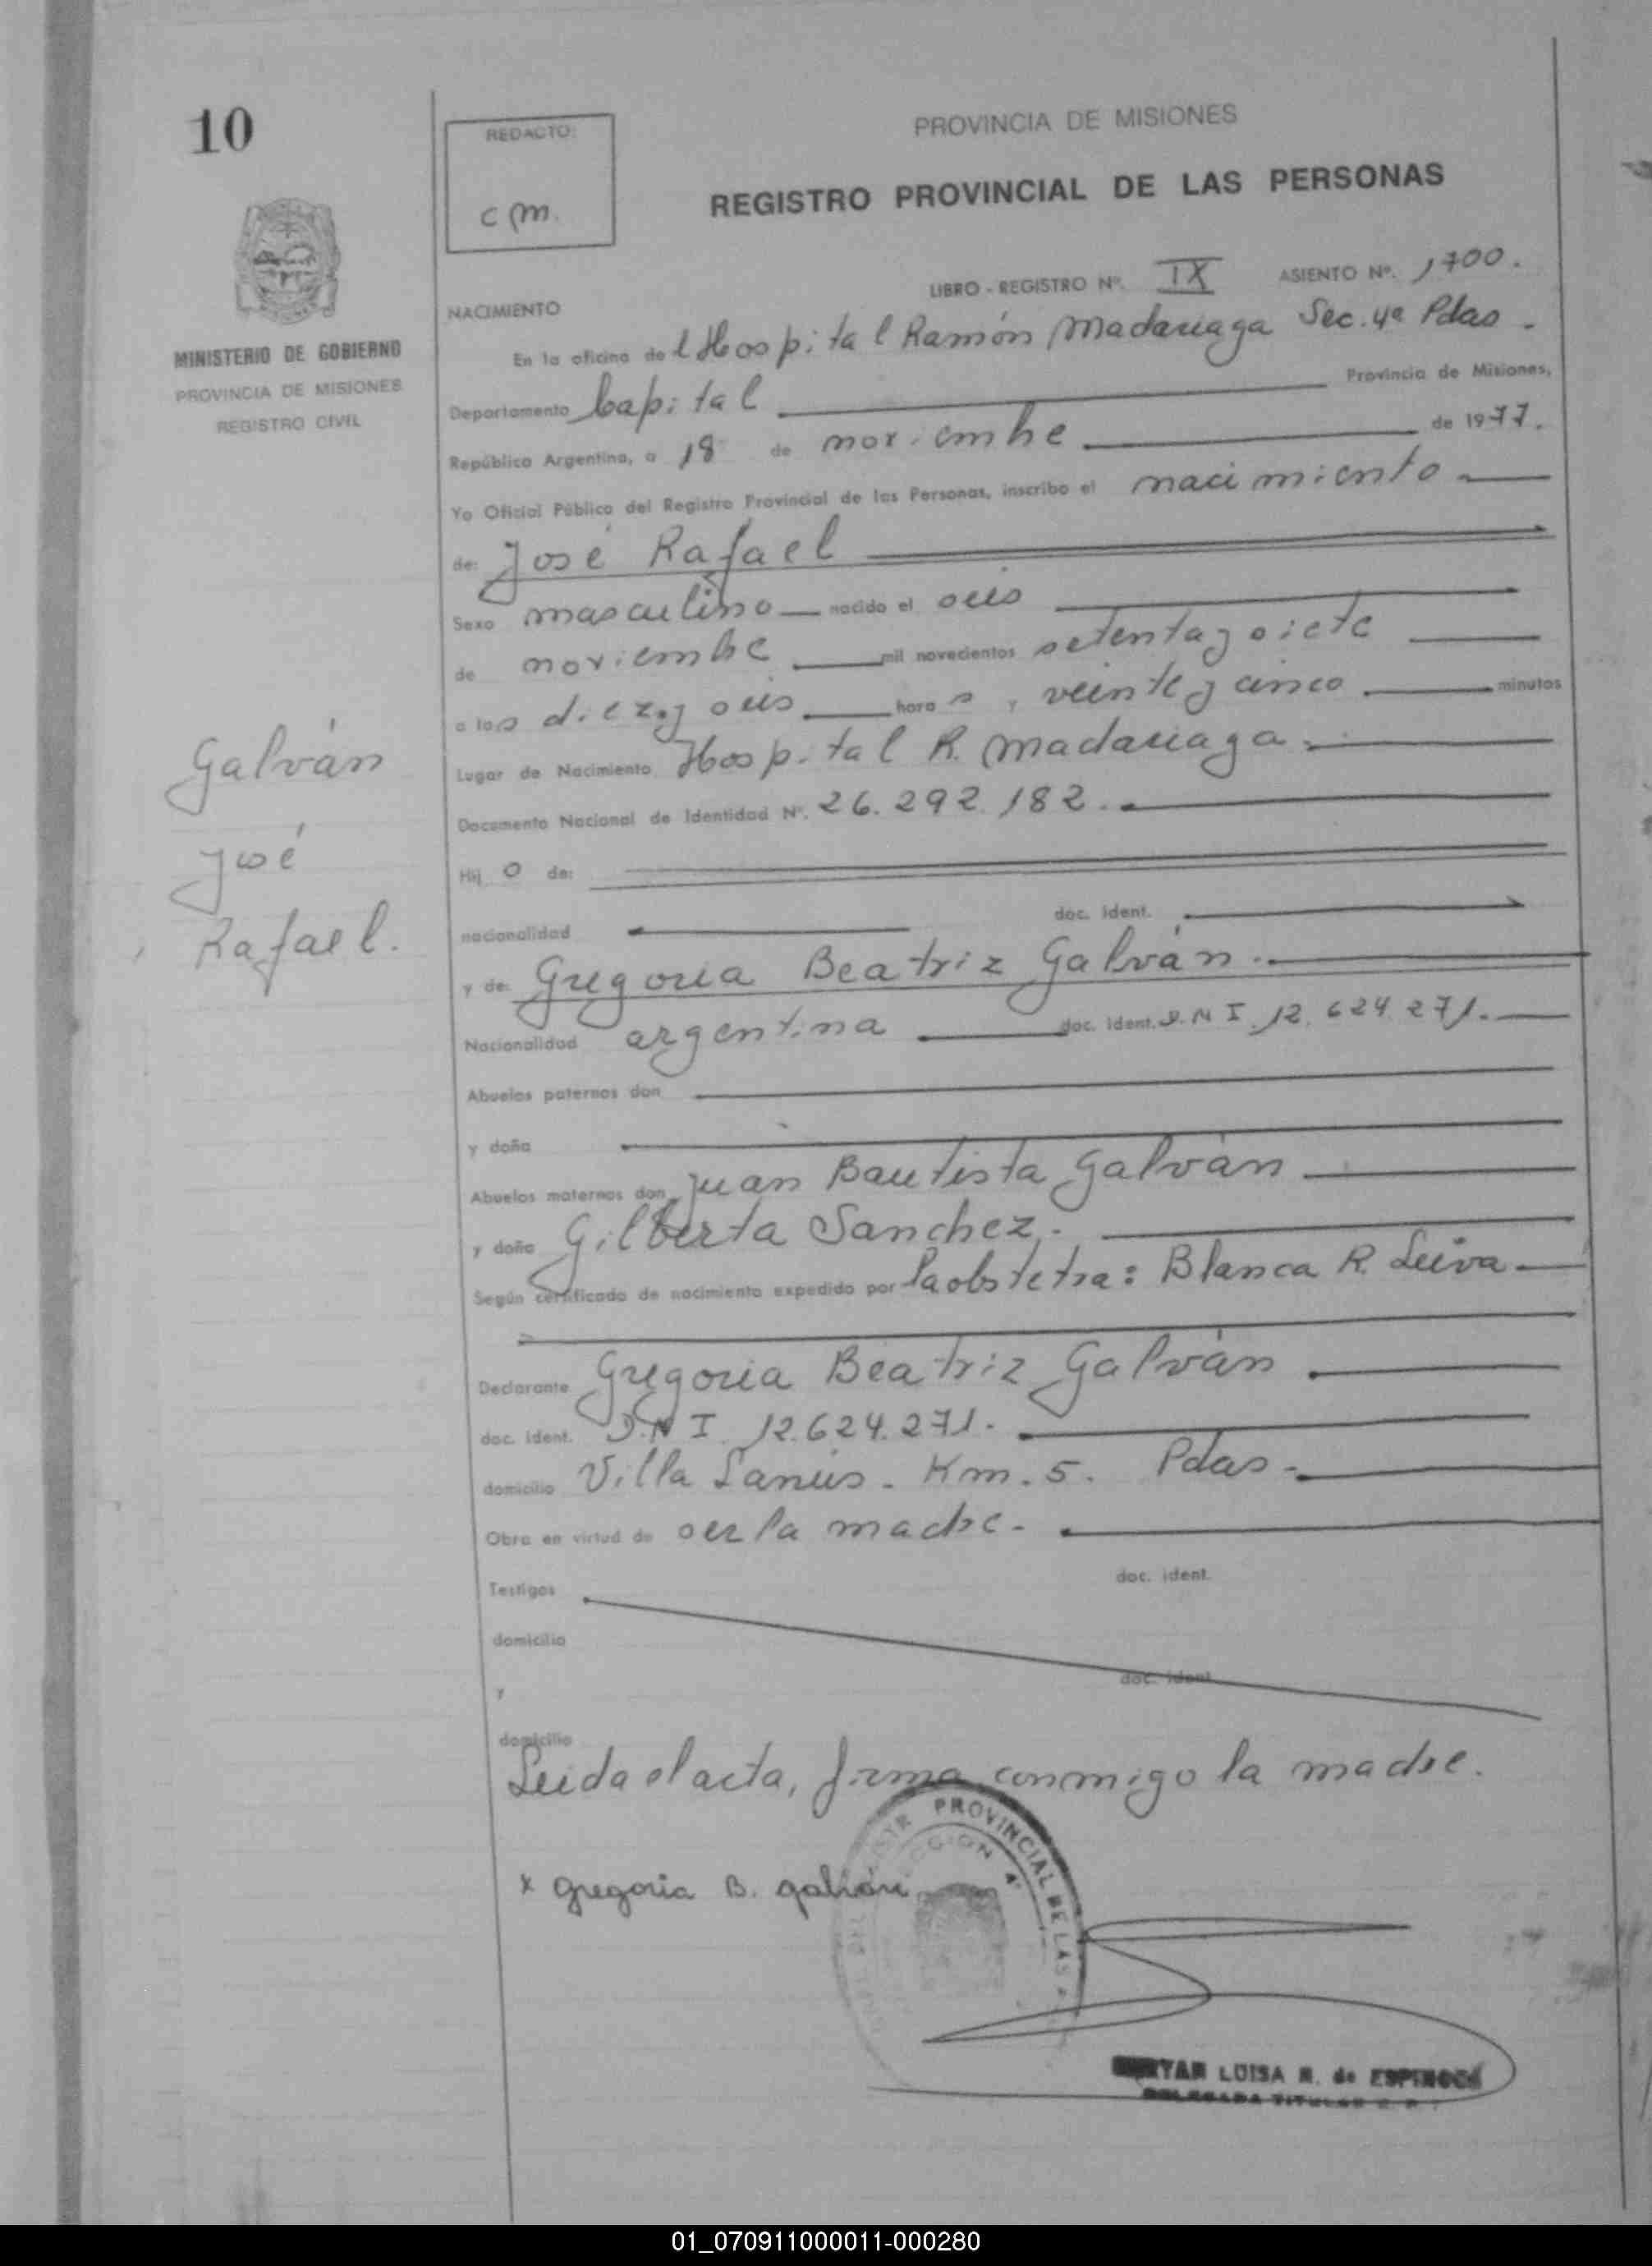 10
REDACTO:
c m.
PROVINCIA DE MISIONES
REGISTRO PROVINCIAL DE LAS PERSONAS
MINISTERIO DE GOBIERNO
PROVINCIA DE MISIONES
REGISTRO CIVIL
LIBRO - REGISTRO Nº. IX ASIENTO Nº. 1700.
NACIMIENTO
En la oficina del Hospital Ramón Madariaga Sec. 4ª Pdas.
Departamento Capital Provincia de Misiones,
República Argentina, a 18 de noviembre de 1977.
Yo Oficial Público del Registro Provincial de las Personas, inscribo el nacimiento
de: José Rafael
Sexo masculino nacido el seis
de noviembre mil novecientos setenta y siete
a las diez y seis horas y veinte y cinco minutos
Lugar de Nacimiento Hospital R. Madariaga.
Documento Nacional de Identidad Nº. 26.292.182.
Hij o de:
nacionalidad doc. ident.
y de: Gregoria Beatriz Galván.
Nacionalidad argentina doc. ident. D.N I. 12.624.271.
Abuelos paternos don
y doña
Abuelos maternos don Juan Bautista Galván
y doña Gilberta Sanchez.
Según certificado de nacimiento expedido por la obstetra: Blanca R. Leiva
Declarante Gregoria Beatriz Galván
doc. ident. D.N I. 12.624.271.
domicilio Villa Lanús. Km. 5. Pdas.
Obra en virtud de ser la madre.
Testigos doc. ident.
domicilio
y doc. ident.
domicilio
Galván
José
Rafael.
Leida el acta, firma conmigo la madre.
x Gregoria B. galván
PROVINCIAL DE LAS
4ª
LUISA R. de ESPINOZA
DELEGADA TITULAR
01_070911000011-000280